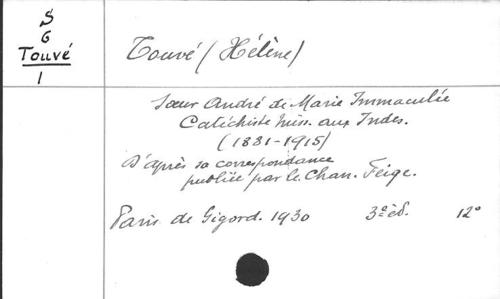 S
6
Touvé
1
Touvé (Hélène)
Sœur André de Marie Immaculée
Catéchiste Miss. aux Indes.
(1881-1915)
D'après sa correspondance
publiée par le Chan. Feige.
Paris de Gigord. 1930 3e éd. 12°